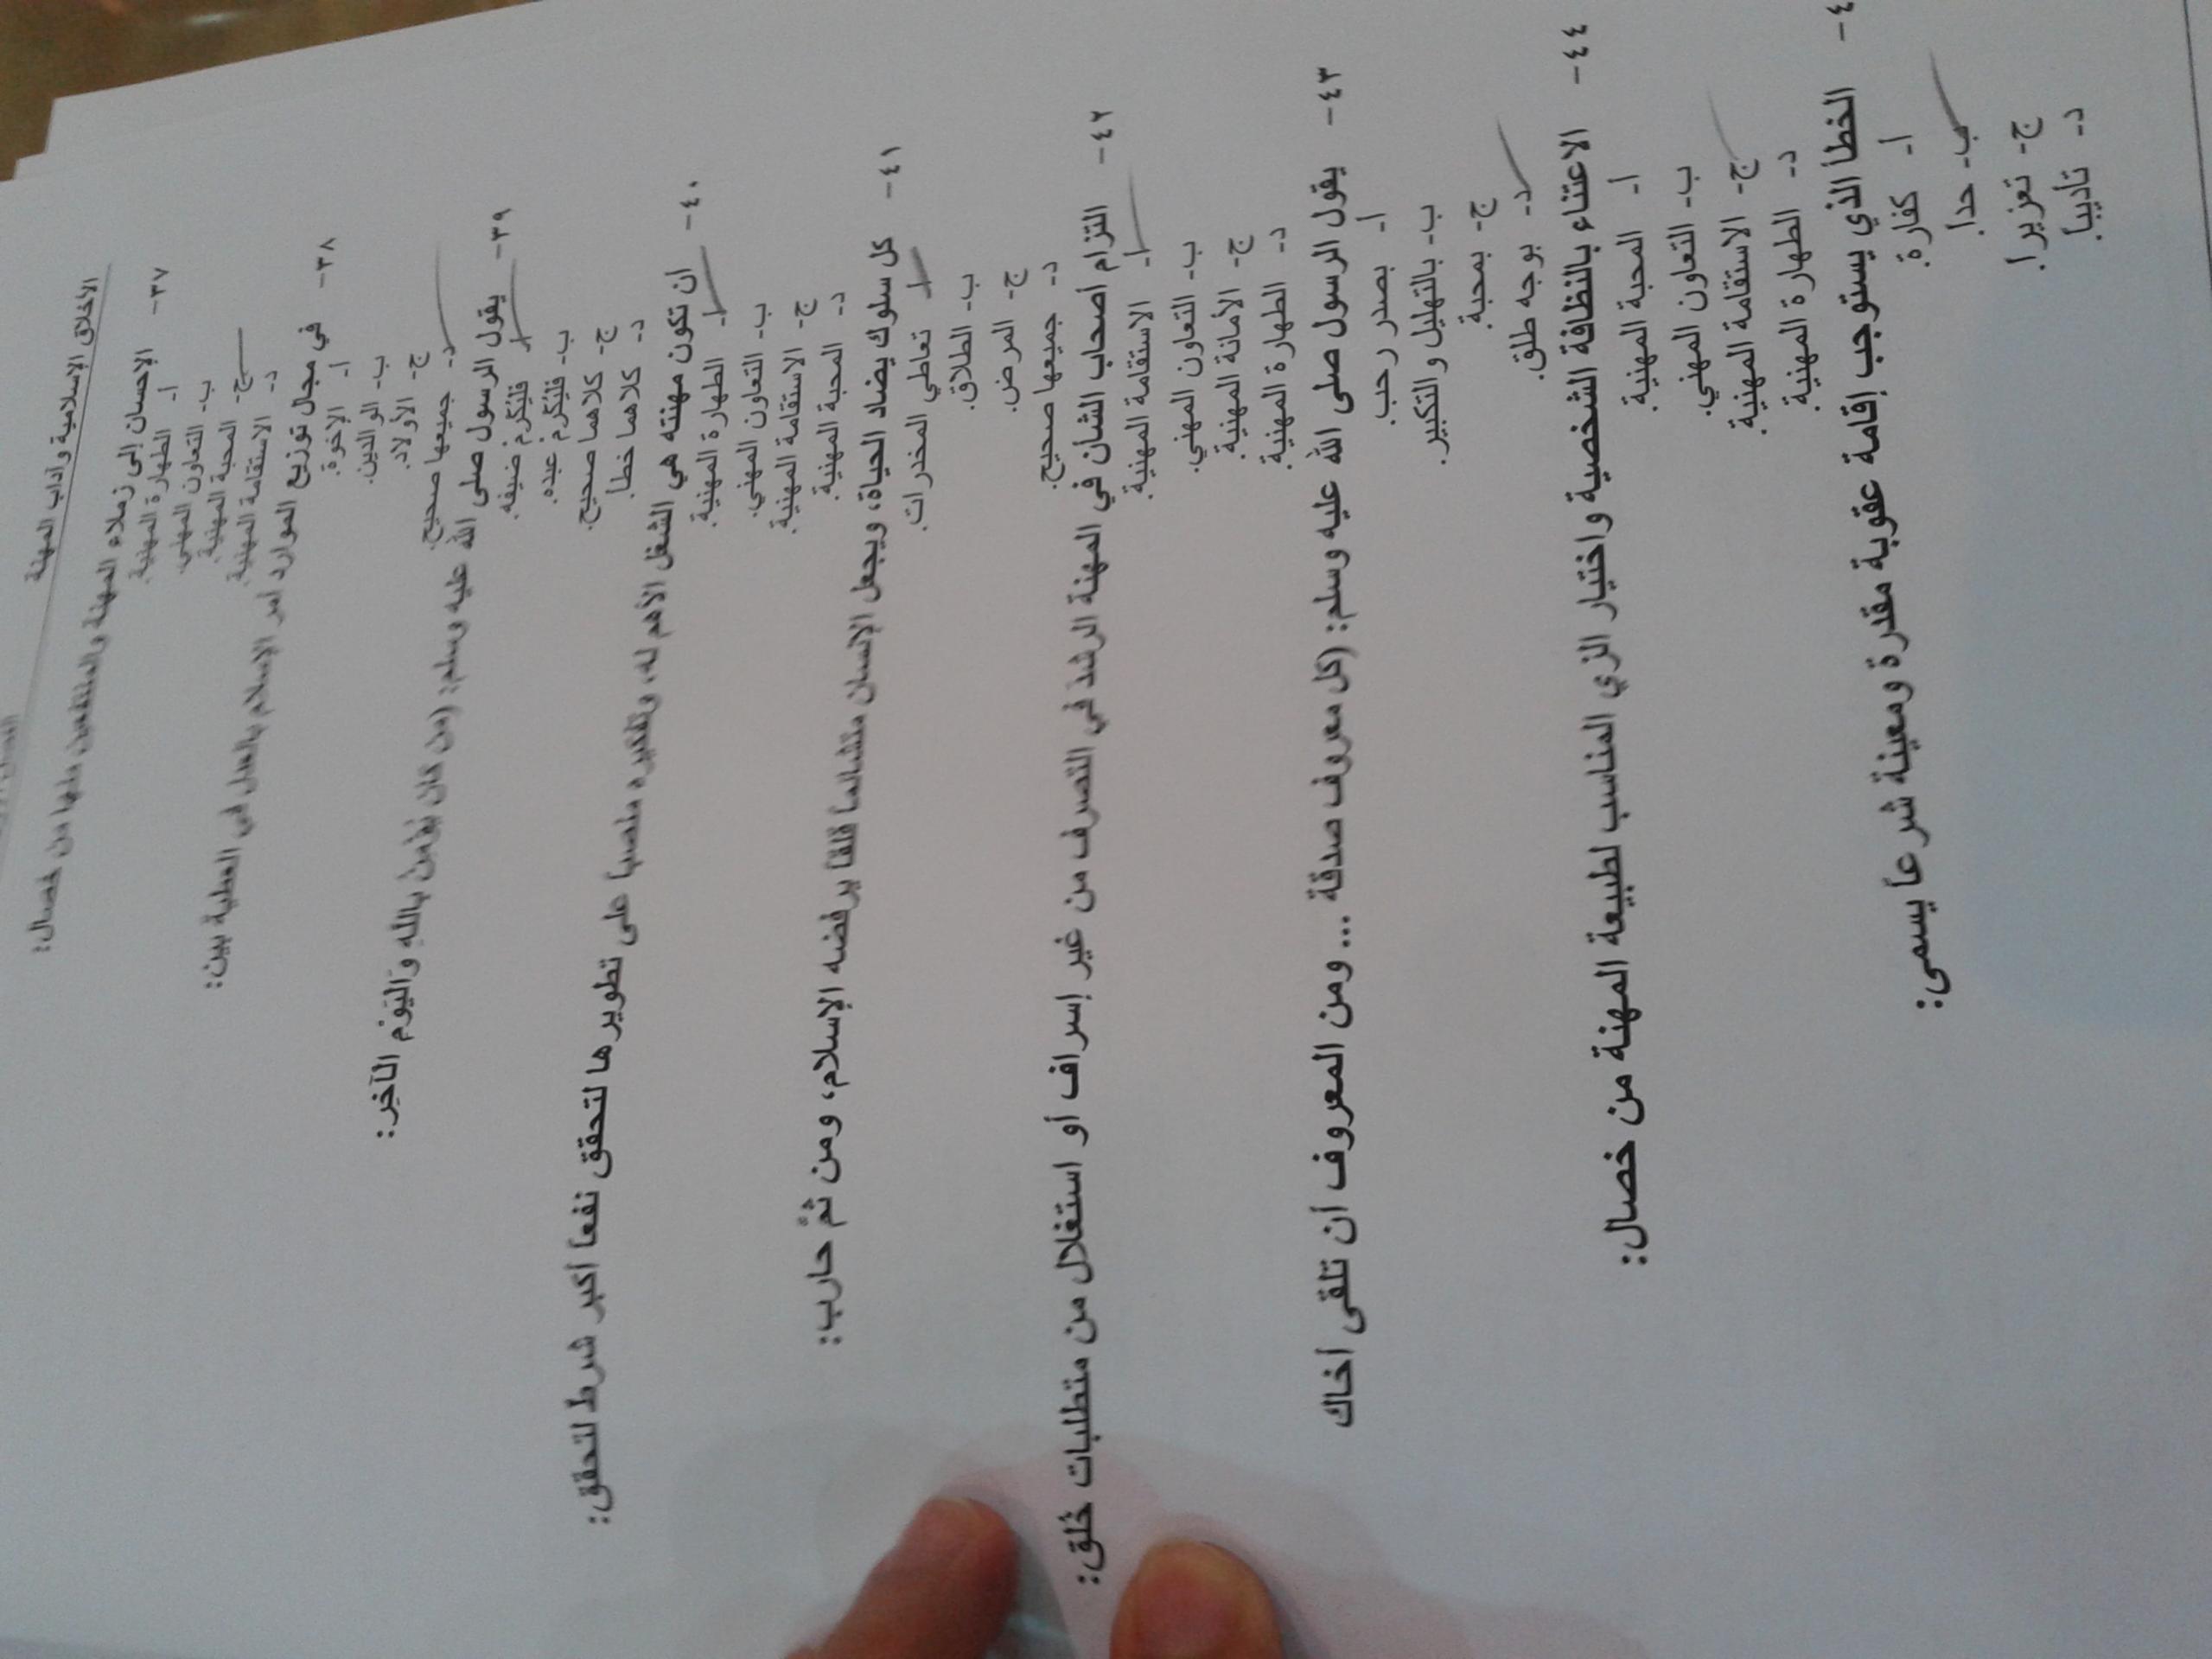 الأخلاق الإسلامية وآداب المهنة
٣٧- الإحسان إلى زملاء المهنة والمنتفعين منها من خصال:
أ- الطهارة المهنية.
ب- التعاون المهني.
ج- المحبة المهنية.
د- الاستقامة المهنية.
٣٨- في مجال توزيع الموارد أمر الإسلام بالعدل في العطية بين:
أ- الإخوة.
ب- الوالدين.
ج- الأولاد.
د- جميعها صحيح.
٣٩- يقول الرسول صلى الله عليه وسلم: (من كان يُؤمن بالله وَاليَوْم الآخِر:
أ- فَلْيُكْرِمْ ضيفه.
ب- فَلْيُكْرِمْ عبده.
ج- كلاهما صحيح.
د- كلاهما خطأ.
٤٠- أن تكون مهنته هي الشغل الأهم له، وتفكيره منصبا على تطويرها لتحقق نفعاً أكبر شرط لتحقق:
أ- الطهارة المهنية.
ب- التعاون المهني.
ج- الاستقامة المهنية.
د- المحبة المهنية.
٤١- كل سلوك يضاد الحياة، ويجعل الإنسان متشائماً قلقاً يرفضه الإسلام، ومن ثمّ حارب:
أ- تعاطي المخدرات.
ب- الطلاق.
ج- المرض.
د- جميعها صحيح.
٤٢- التزام أصحاب الشأن في المهنة الرشد في التصرف من غير إسراف أو استغلال من متطلبات خُلق:
أ- الاستقامة المهنية.
ب- التعاون المهني.
ج- الأمانة المهنية.
د- الطهارة المهنية.
٤٣- يقول الرسول صلى الله عليه وسلم: (كل معروف صدقة ... ومن المعروف أن تلقى أخاك
أ- بصدر رحب.
ب- بالتهليل والتكبير.
ج- بمحبة.
د- بوجه طلق.
٤٤- الاعتناء بالنظافة الشخصية واختيار الزي المناسب لطبيعة المهنة من خصال:
أ- المحبة المهنية.
ب- التعاون المهني.
ج- الاستقامة المهنية.
د- الطهارة المهنية.
٤- الخطأ الذي يستوجب إقامة عقوبة مقدرة ومعينة شرعاً يسمى:
أ- كفارة.
ب- حدا.
ج- تعزيرا.
د- تأديباً.